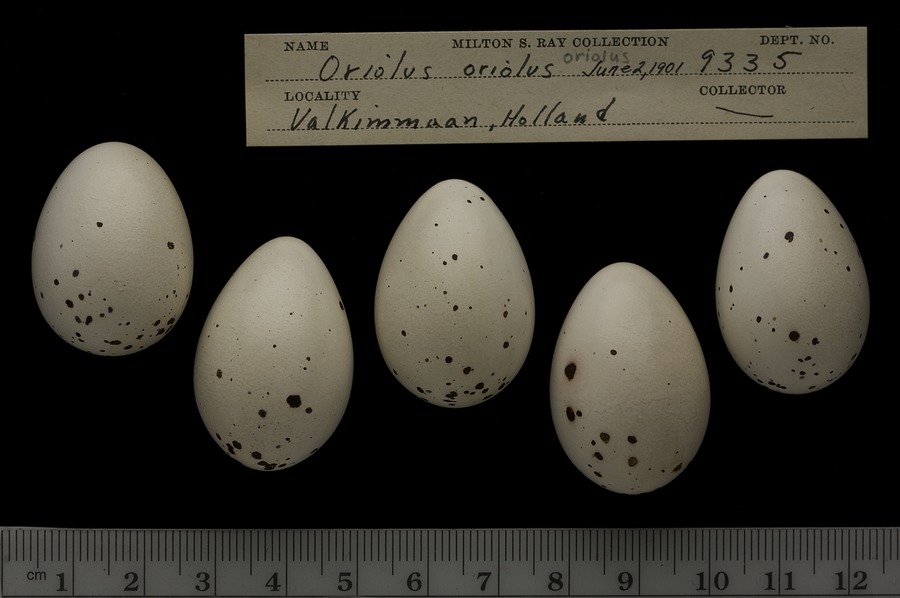 NAME MILTON S. RAY COLLECTION DEPT. NO.
oriolus
Oriolus oriolus June 2, 1901 9335
LOCALITY COLLECTOR
Valkimmaan, Holland
cm 1 2 3 4 5 6 7 8 9 10 11 12